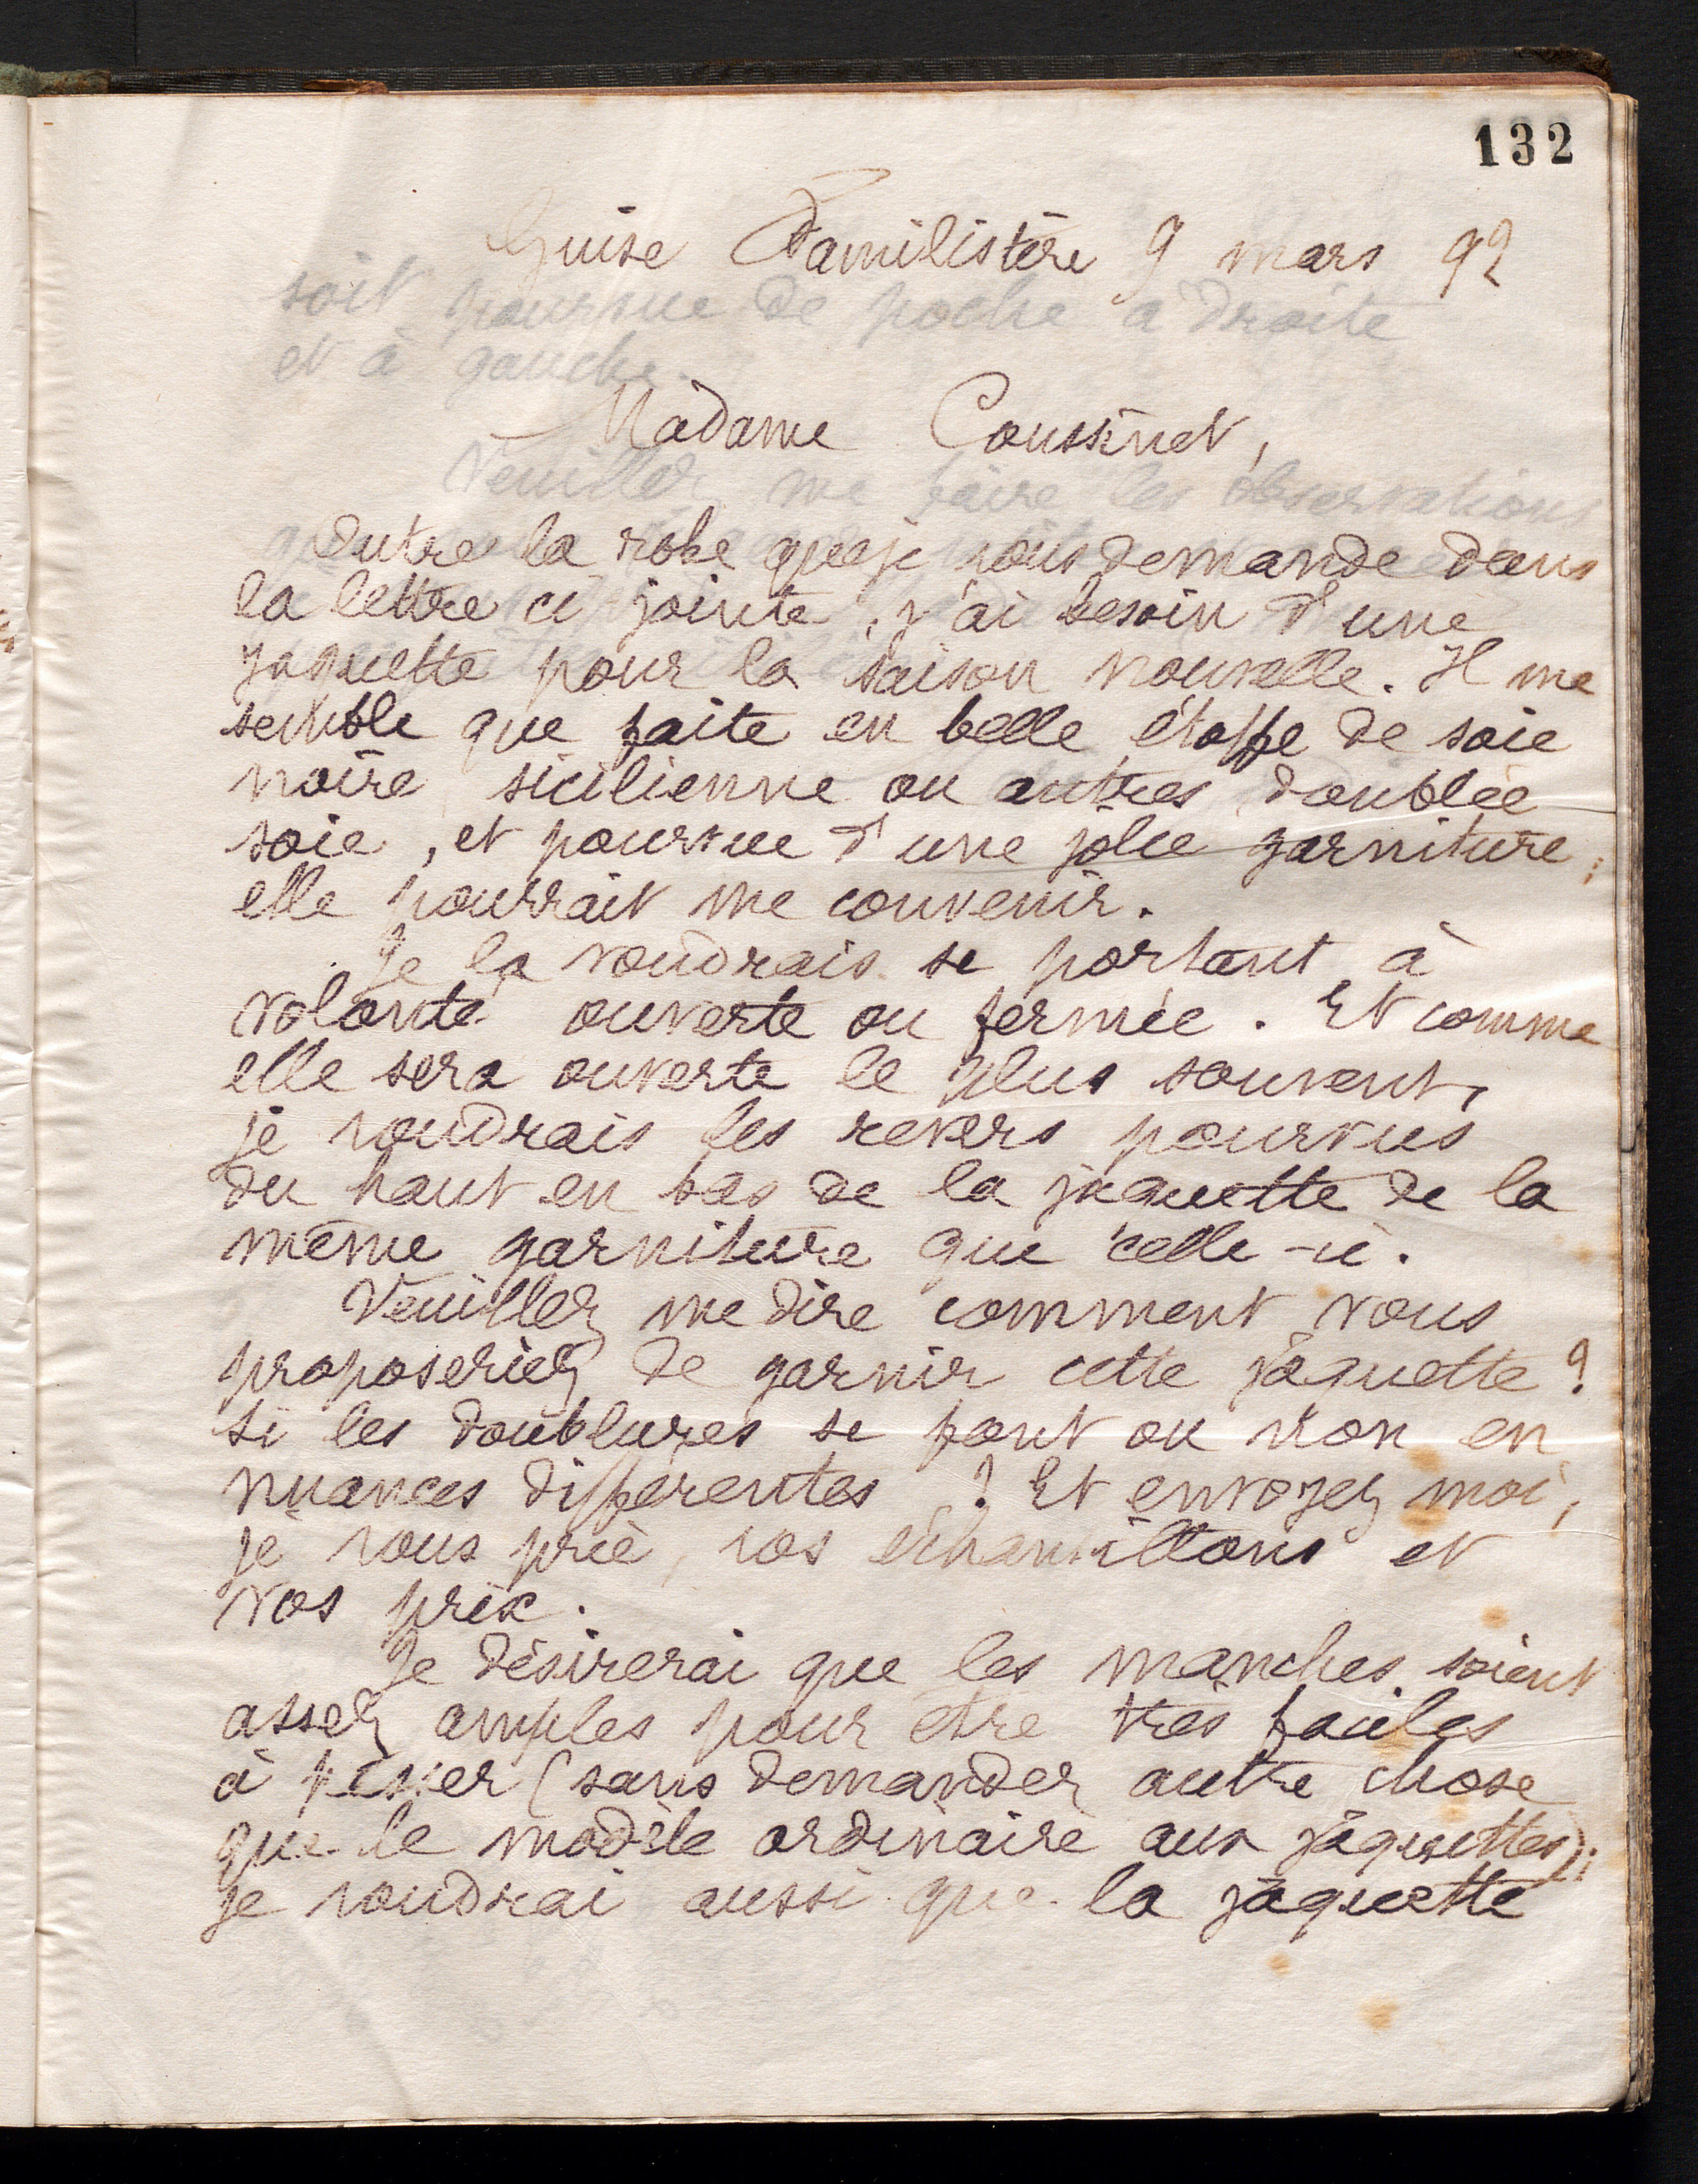 132
Guise Familistère 9 mars 92
soit pourvue de poche à droite
et à gauche.
Madame Coussinet,
Veuillez me faire les observations
Outre la robe que je vous demande dans
la lettre ci-jointe, j'ai besoin d'une
jaquette pour la saison nouvelle. Il me
semble que faite en belle étoffe de soie
noire sicilienne ou autres doublée
soie, et pourvue d'une jolie garniture;
elle pourrait me convenir.
Je la voudrais se portant à
volonté ouverte ou fermée. Et comme
elle sera ouverte le plus souvent,
je voudrais les revers pourvus
du haut en bas de la jaquette de la
même garniture que celle-ci.
Veuillez me dire comment vous
proposeriez de garnir cette jaquette?
si les doublures se font ou non en
nuances différentes? Et envoyez moi,
je vous prie, vos échantillons et
vos prix.
Je désirerai que les manches soient
assez amples pour être très faciles
à passer (sans demander autre chose
que le modèle ordinaire aux jaquettes);
je voudrai aussi que la jaquette